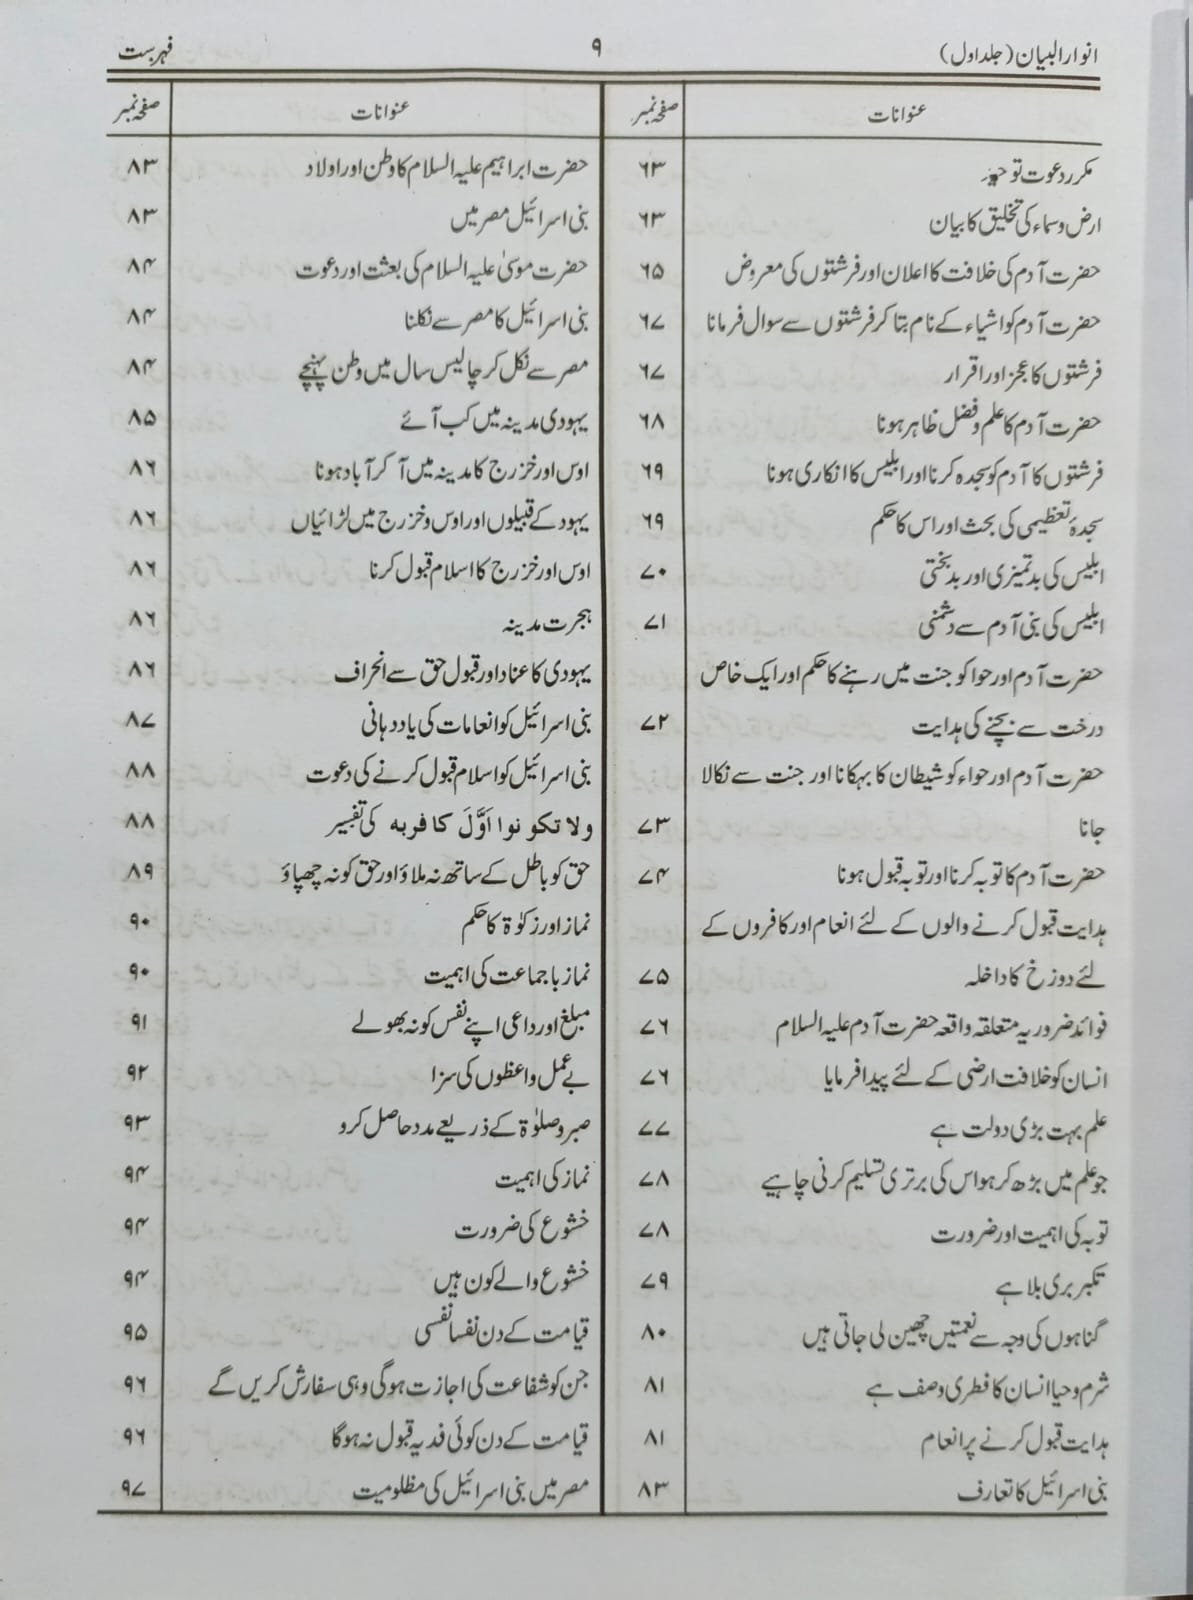 انوار البیان (جلد اول) ۹ فہرست
عنوانات صفحہ نمبر
مکرر دعوت توحید ۶۳
ارض وسماء کی تخلیق کا بیان ۶۳
حضرت آدم کی خلافت کا اعلان اور فرشتوں کی معروض ۶۵
حضرت آدم کو اشیاء کے نام بتا کر فرشتوں سے سوال فرمانا ۶۷
فرشتوں کا عجز اور اقرار ۶۷
حضرت آدم کا علم و فضل ظاہر ہونا ۶۸
فرشتوں کا آدم کو سجدہ کرنا اور ابلیس کا انکاری ہونا ۶۹
سجدۂ تعظیمی کی بحث اور اس کا حکم ۶۹
ابلیس کی بدتمیزی اور بدبختی ۷۰
ابلیس کی بنی آدم سے دشمنی ۷۱
حضرت آدم اور حوا کو جنت میں رہنے کا حکم اور ایک خاص
درخت سے بچنے کی ہدایت ۷۲
حضرت آدم اور حواء کو شیطان کا بہکانا اور جنت سے نکالا
جانا ۷۳
حضرت آدم کا توبہ کرنا اور توبہ قبول ہونا ۷۴
ہدایت قبول کرنے والوں کے لئے انعام اور کافروں کے
لئے دوزخ کا داخلہ ۷۵
فوائد ضروریہ متعلقہ واقعہ حضرت آدم علیہ السلام ۷۶
انسان کو خلافت ارضی کے لئے پیدا فرمایا ۷۶
علم بہت بڑی دولت ہے ۷۷
جو علم میں بڑھ کر ہو اس کی برتری تسلیم کرنی چاہیے ۷۸
توبہ کی اہمیت اور ضرورت ۷۸
تکبر بری بلا ہے ۷۹
گناہوں کی وجہ سے نعمتیں چھین لی جاتی ہیں ۸۰
شرم و حیا انسان کا فطری وصف ہے ۸۱
ہدایت قبول کرنے پر انعام ۸۱
بنی اسرائیل کا تعارف ۸۳
عنوانات صفحہ نمبر
حضرت ابراہیم علیہ السلام کا وطن اور اولاد ۸۳
بنی اسرائیل مصر میں ۸۳
حضرت موسیٰ علیہ السلام کی بعثت اور دعوت ۸۴
بنی اسرائیل کا مصر سے نکلنا ۸۴
مصر سے نکل کر چالیس سال میں وطن پہنچے ۸۴
یہودی مدینہ میں کب آئے ۸۵
اوس اور خزرج کا مدینہ میں آ کر آباد ہونا ۸۶
یہود کے قبیلوں اور اوس و خزرج میں لڑائیاں ۸۶
اوس اور خزرج کا اسلام قبول کرنا ۸۶
ہجرت مدینہ ۸۶
یہودی کا عناد اور قبول حق سے انحراف ۸۶
بنی اسرائیل کو انعامات کی یاددہانی ۸۷
بنی اسرائیل کو اسلام قبول کرنے کی دعوت ۸۸
ولا تکونوا اَوَّلَ کافر بہ کی تفسیر ۸۸
حق کو باطل کے ساتھ نہ ملاؤ اور حق کو نہ چھپاؤ ۸۹
نماز اور زکوٰۃ کا حکم ۹۰
نماز باجماعت کی اہمیت ۹۰
مبلغ اور داعی اپنے نفس کو نہ بھولے ۹۱
بے عمل واعظوں کی سزا ۹۲
صبر و صلوٰۃ کے ذریعے مدد حاصل کرو ۹۳
نماز کی اہمیت ۹۴
خشوع کی ضرورت ۹۴
خشوع والے کون ہیں ۹۴
قیامت کے دن نفسا نفسی ۹۵
جن کو شفاعت کی اجازت ہوگی وہی سفارش کریں گے ۹۶
قیامت کے دن کوئی فدیہ قبول نہ ہوگا ۹۶
مصر میں بنی اسرائیل کی مظلومیت ۹۷